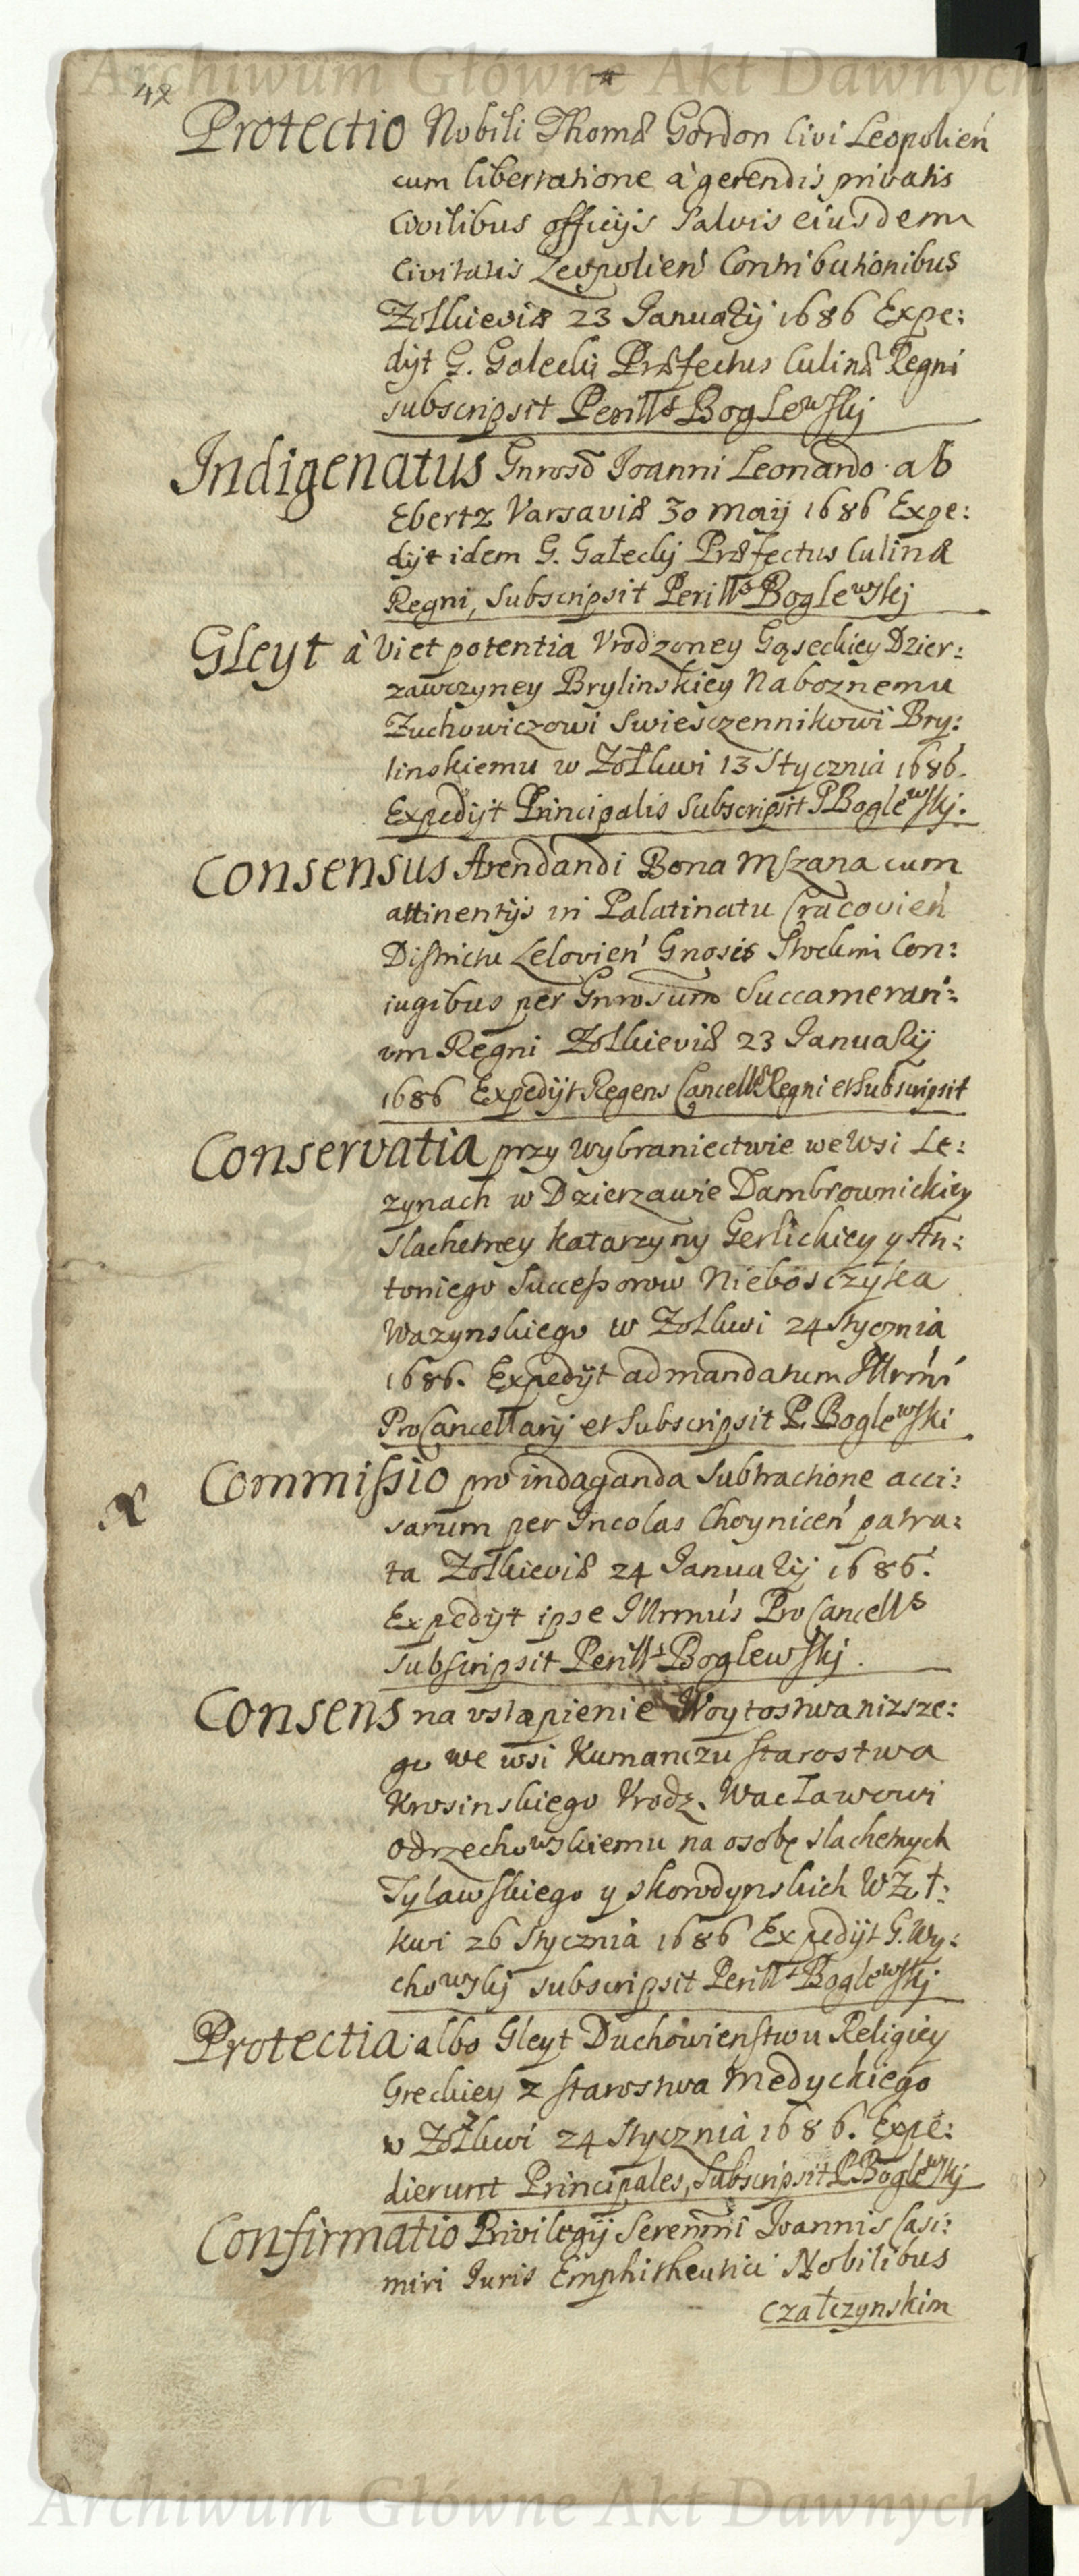 Archiwum Główne Akt Dawnych
48
Protectio Nobili Thomæ Gordon Civi Leopolień
cum libertatione à gerendis privatis
Civilibus officijs Salvis eiusdem
Civitatis Leopolień Contributionibus
Zołkieviæ 23 Januarij 1686 Expe:
dijt G. Galecki Præfectus Culinæ Regni
subscripsit Perills Boglewskj
Indigenatus Gnroso Joanni Leonardo ab
Ebertz Varsaviæ 30 maij 1686 Expe:
dijt idem G. Gałeckj Præfectus Culinæ
Regni, Subscripsit Perills Boglewskj
Gleyt à Vi et potentia Vrodzoney Gąseckiey Dzier:
zawczyney Brylinskiey Naboznemu
Zuchowiczowi Swiesczennikowi Bry:
linskiemu w Zołkwi 13 Stycznia 1686.
Expedijt Principalis Subscripsit P Boglewskj.
Consensus Arendandi Bona Mszana cum
attinentijs in Palatinatu Cracovień
Districtu Lelovień Gnosis Stockimi Con:
iugibus per Gnrosum Succamerari:
um Regni Zołkieviæ 23 Januarij
1686 Expedijt Regens Cancellæ Regni et Subscripsit
Conservatia przy wybraniectwie we Wsi Le:
zynach w Dzierzawie Dambrownickiey
Slachetney Katarzyny Gerlickiey y An:
toniego Successorow Nieboszczyka
Wazynskiego w Zołkwi 24 Stycznia
1686. Expedijt ad mandatum Illrmi
ProCancellarij et Subscripsit P. Boglewski
Commissio pro indaganda Subtractione acci:
sarum per Incolas Choyniceń patra:
ta Zołkieviæ 24 Januarij 1686.
Expedijt ipse Illrmus ProCancells
subscripsit Perills Boglewskj.
Consens na vstąpienie Woytostwa nizsze:
go we wsi Kumanczu starostwa
Krosinskiego Vrodz. Wacławowi
Odrzechowskiemu na osobę slachetnych
Tylawskiego y skorodynskich W Zoł:
kwi 26 Stycznia 1686 Expedijt G. Wy:
chowskj subscripsit Perills Boglewskj
Protectia albo Gleyt Duchowienstwu Religiey
Greckiey z starostwa Medyckiego
w Zołkwi 24 Stycznia 1686. Expe:
dierunt Principales, Subscripsit P. Boglewskj
Confirmatio Privilegij Serenmi Joannis Casi:
miri Juris Emphitheutici Nobilibus
Czałczynskim
Archiwum Główne Akt Dawnych